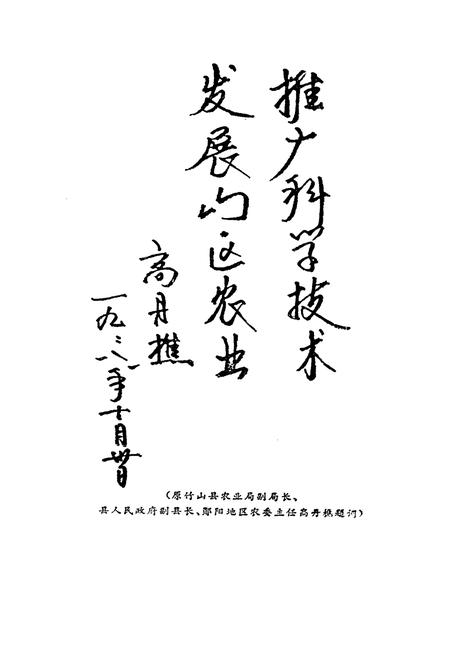 推广科学技术
发展山区农业
高丹樵
一九八八年十月廿日
(原竹山县农业局副局长、
县人民政府副县长、郧阳地区农委主任高丹樵题词)